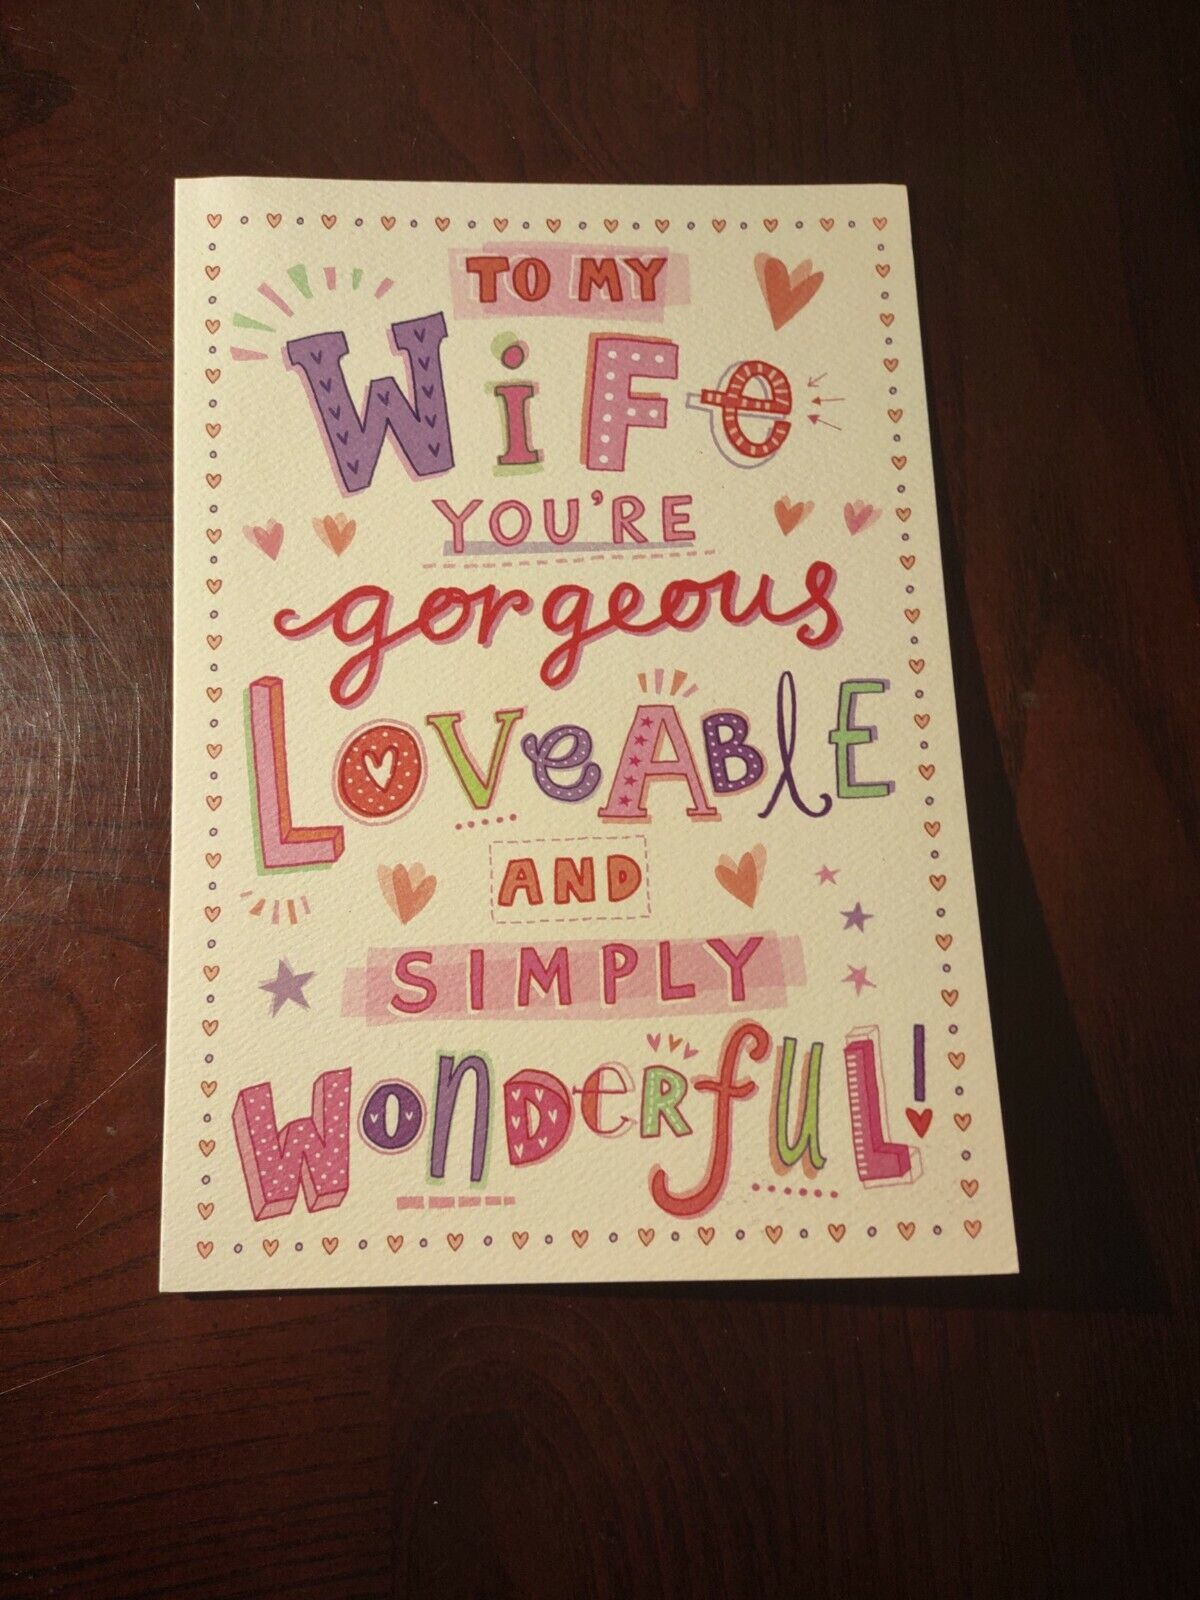 TO MY
WiFe
YOU'RE
gorgeous
LOVeABlE
AND
SIMPLY
WonDeRfuL!